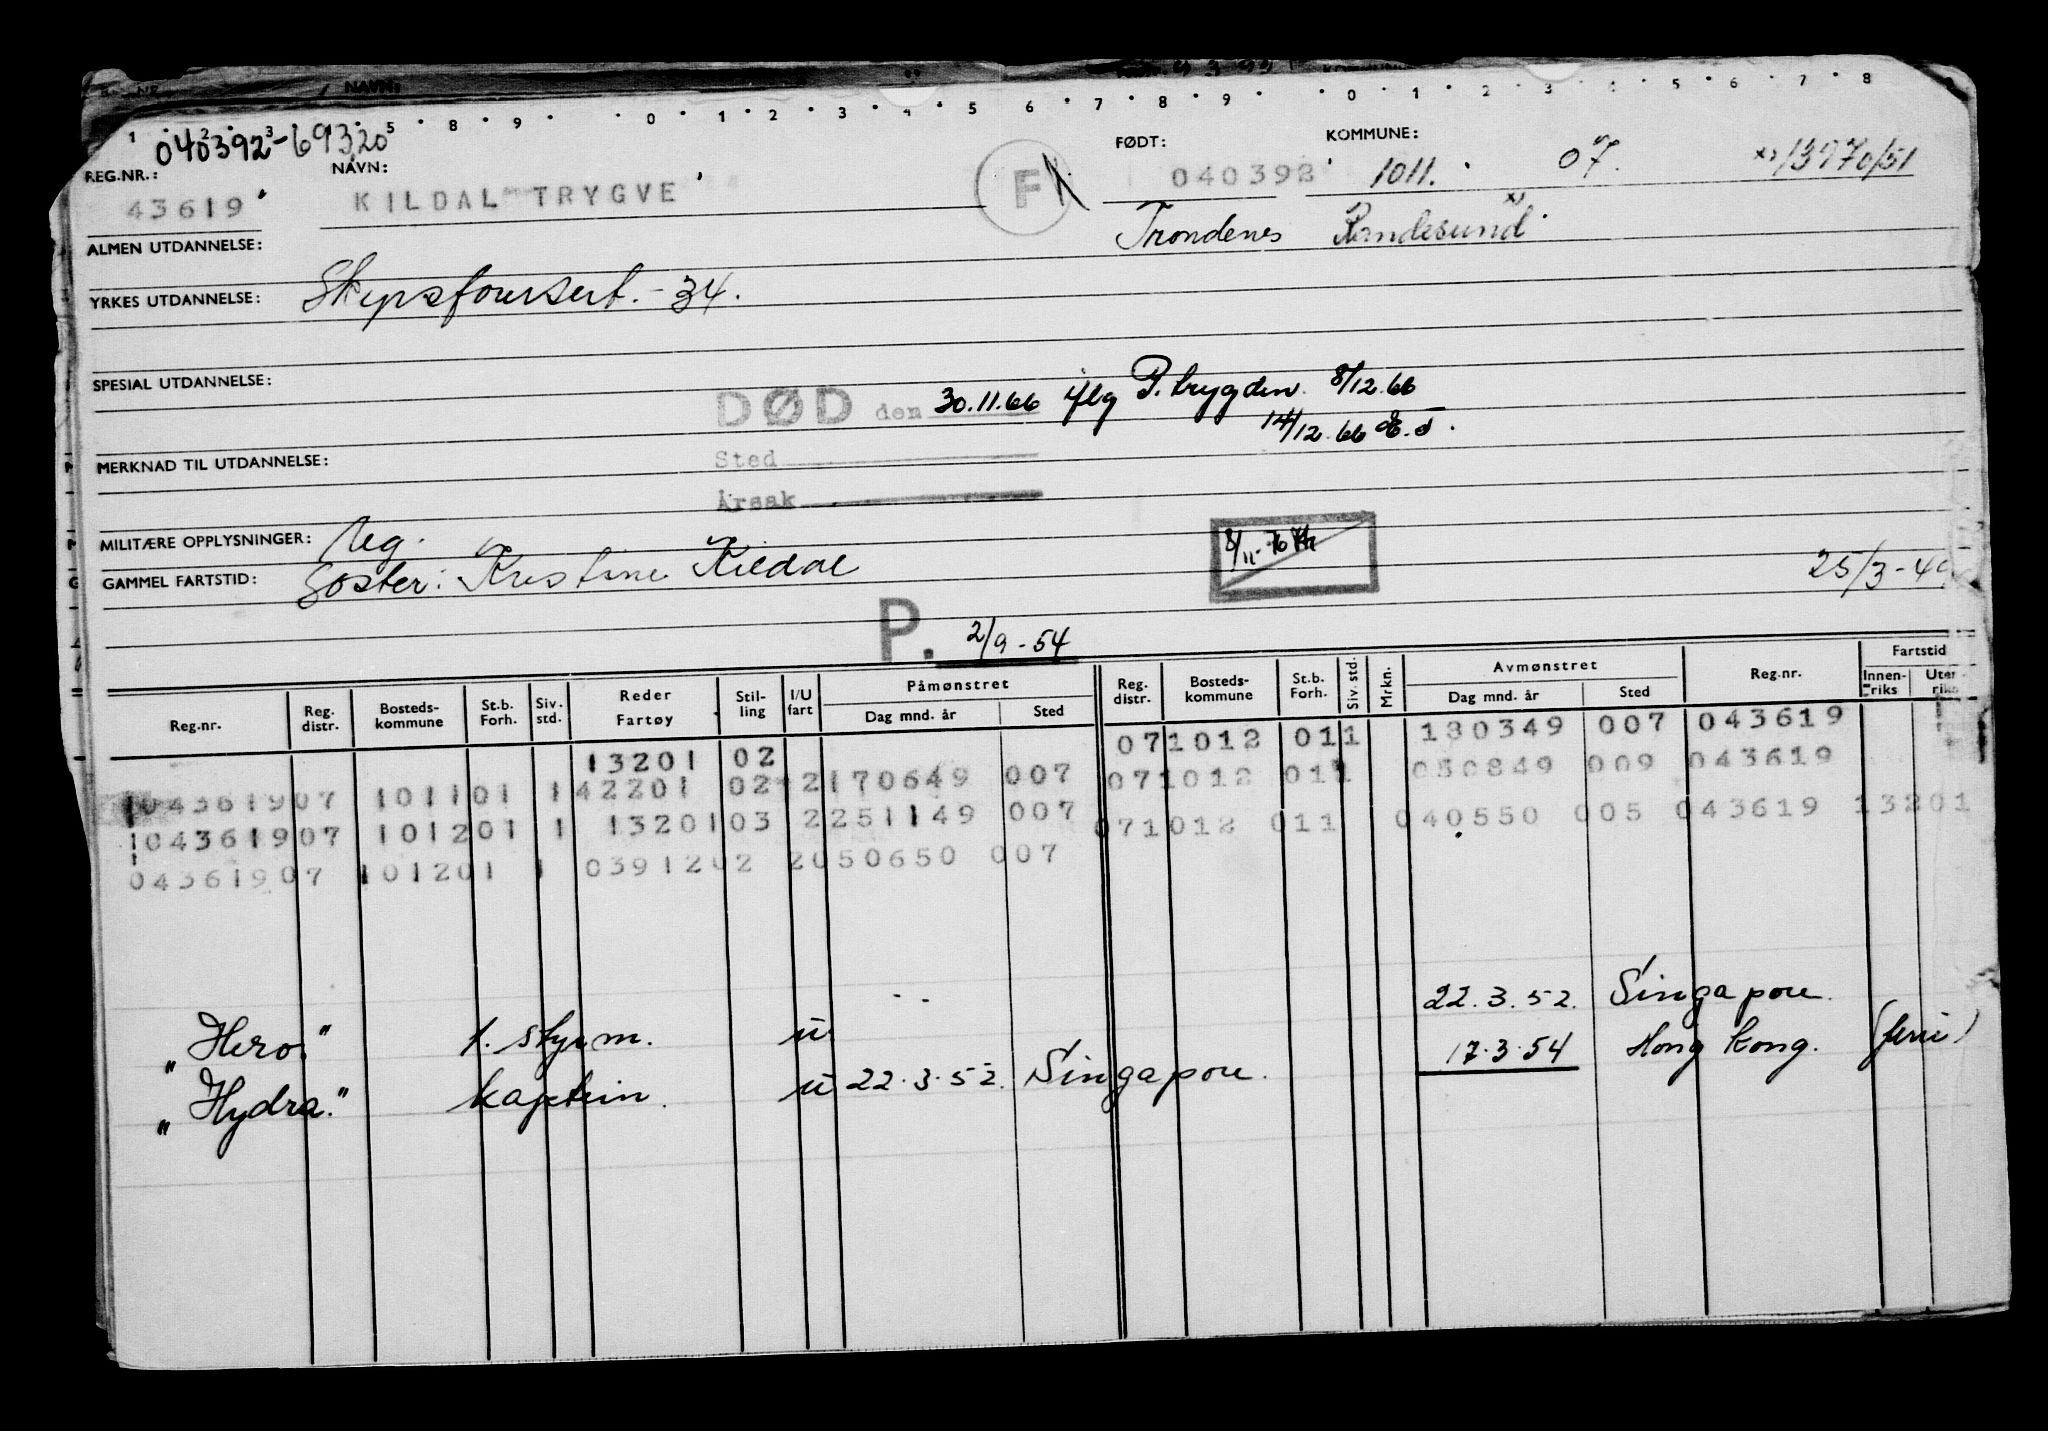 1 2 3 5 8 9 0 1 2 3 4 5 6 7 8 9 0 1 2 3 4 5 6 7 8
040392-69320
REG.NR.: NAVN: FØDT: KOMMUNE:
43619 KILDAL TRYGVE F 040392 1011. 07. x) 1370/51
ALMEN UTDANNELSE: Trondenes Randesund x)
YRKES UTDANNELSE: Skipsførersert. - 34.
SPESIAL UTDANNELSE:
DØD den 30.11.66 iflg P. trygden 8/12.66
14/12.66
MERKNAD TIL UTDANNELSE: Sted
Årsak
MILITÆRE OPPLYSNINGER: Neg.
8/11-70
GAMMEL FARTSTID: Søster: Kristine Kildal 25/3-49
P. 2/9-54
Reg.nr. Reg. distr. Bosteds-kommune St.b. Forh. Siv. std. Reder Fartøy Stil-ling I/U fart Påmønstret Dag mnd. år Sted Reg. distr. Bosteds-kommune St.b. Forh. Siv. std. Mrkn. Avmønstret Dag mnd. år Sted Reg.nr. Fartstid Innen-riks Uten-riks
13201 02 071012 011 180349 007 043619
104361907 101101 1 42201 02 2170649 007 071012 011 050849 009 043619
104361907 101201 1 13201 03 2251149 007 071012 011 040550 005 043619 13201
04361907 101201 1 03912 02 2050650 007
"Hero." 1. styrm. u - - 22.3.52. Singapore.
"Hydra." kaptein. u 22.3.52. Singapore. 17.3.54 Hong Kong. (ferie)